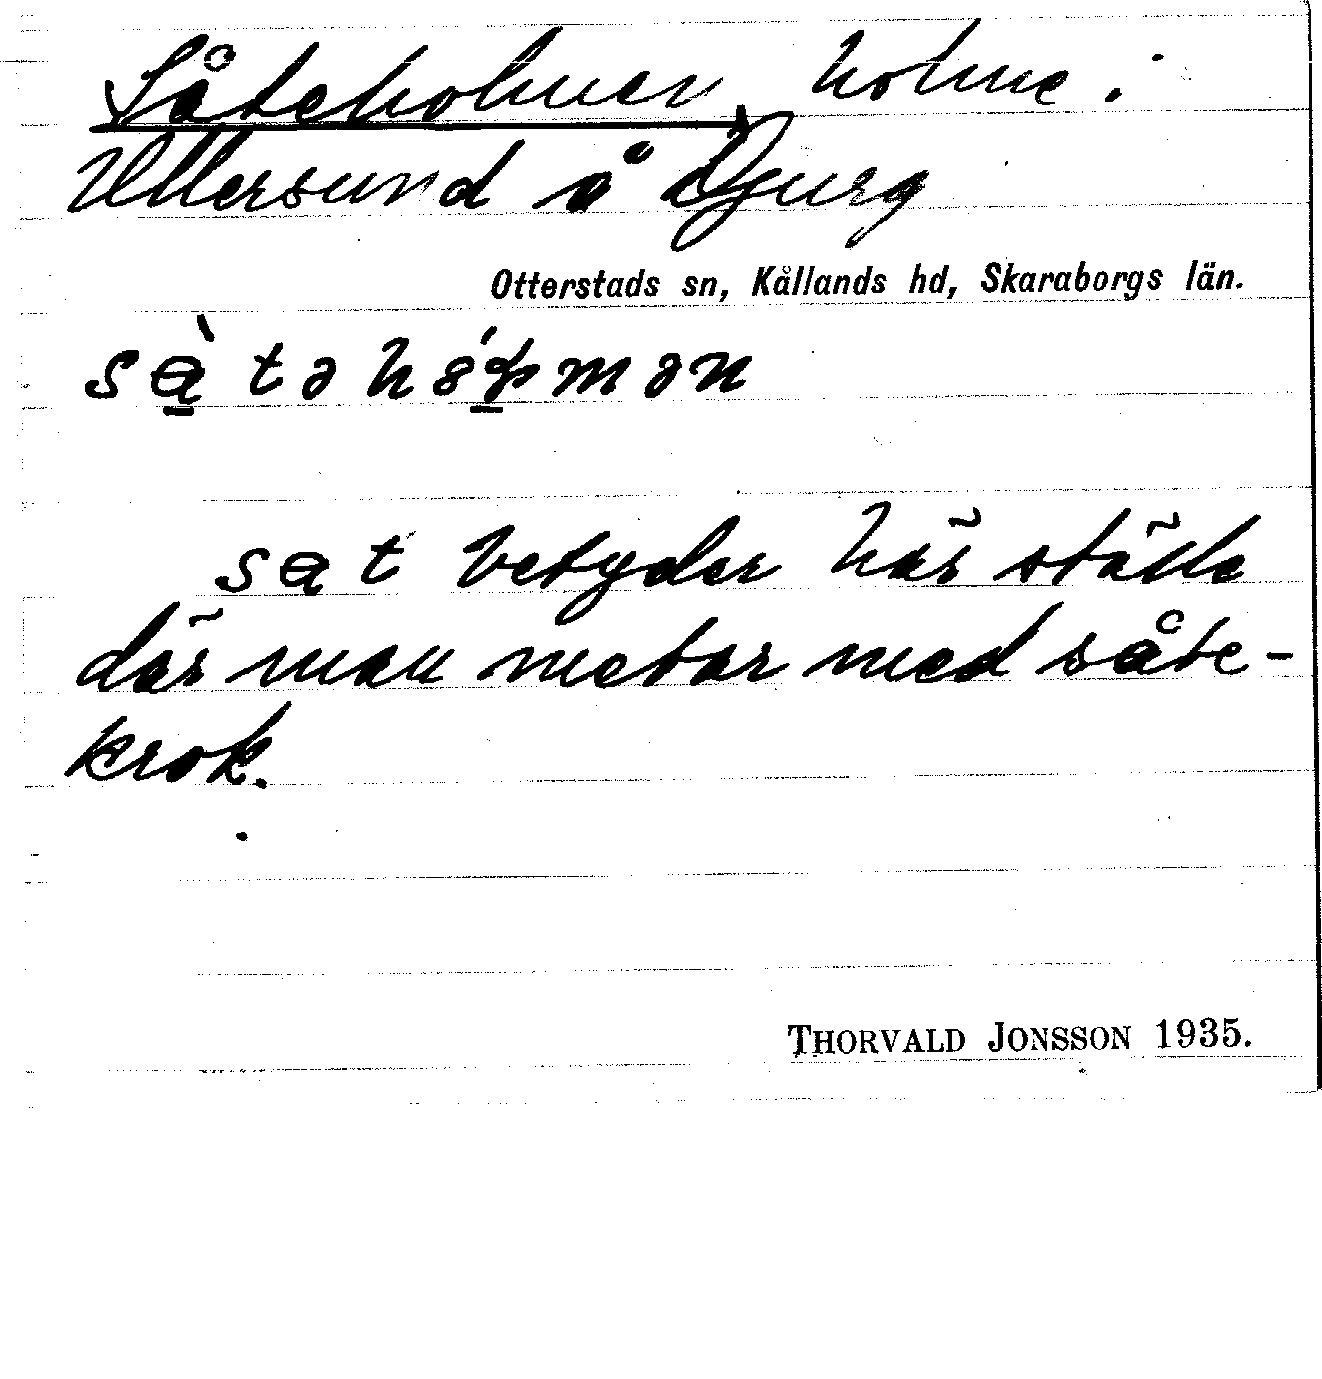 Såteholmen, holme i
Ullersund å Djurg
Otterstads sn, Kållands hd, Skaraborgs län.
betyder här ställe
där man metar med såte-
krok.
THORVALD JONSSON 1935.